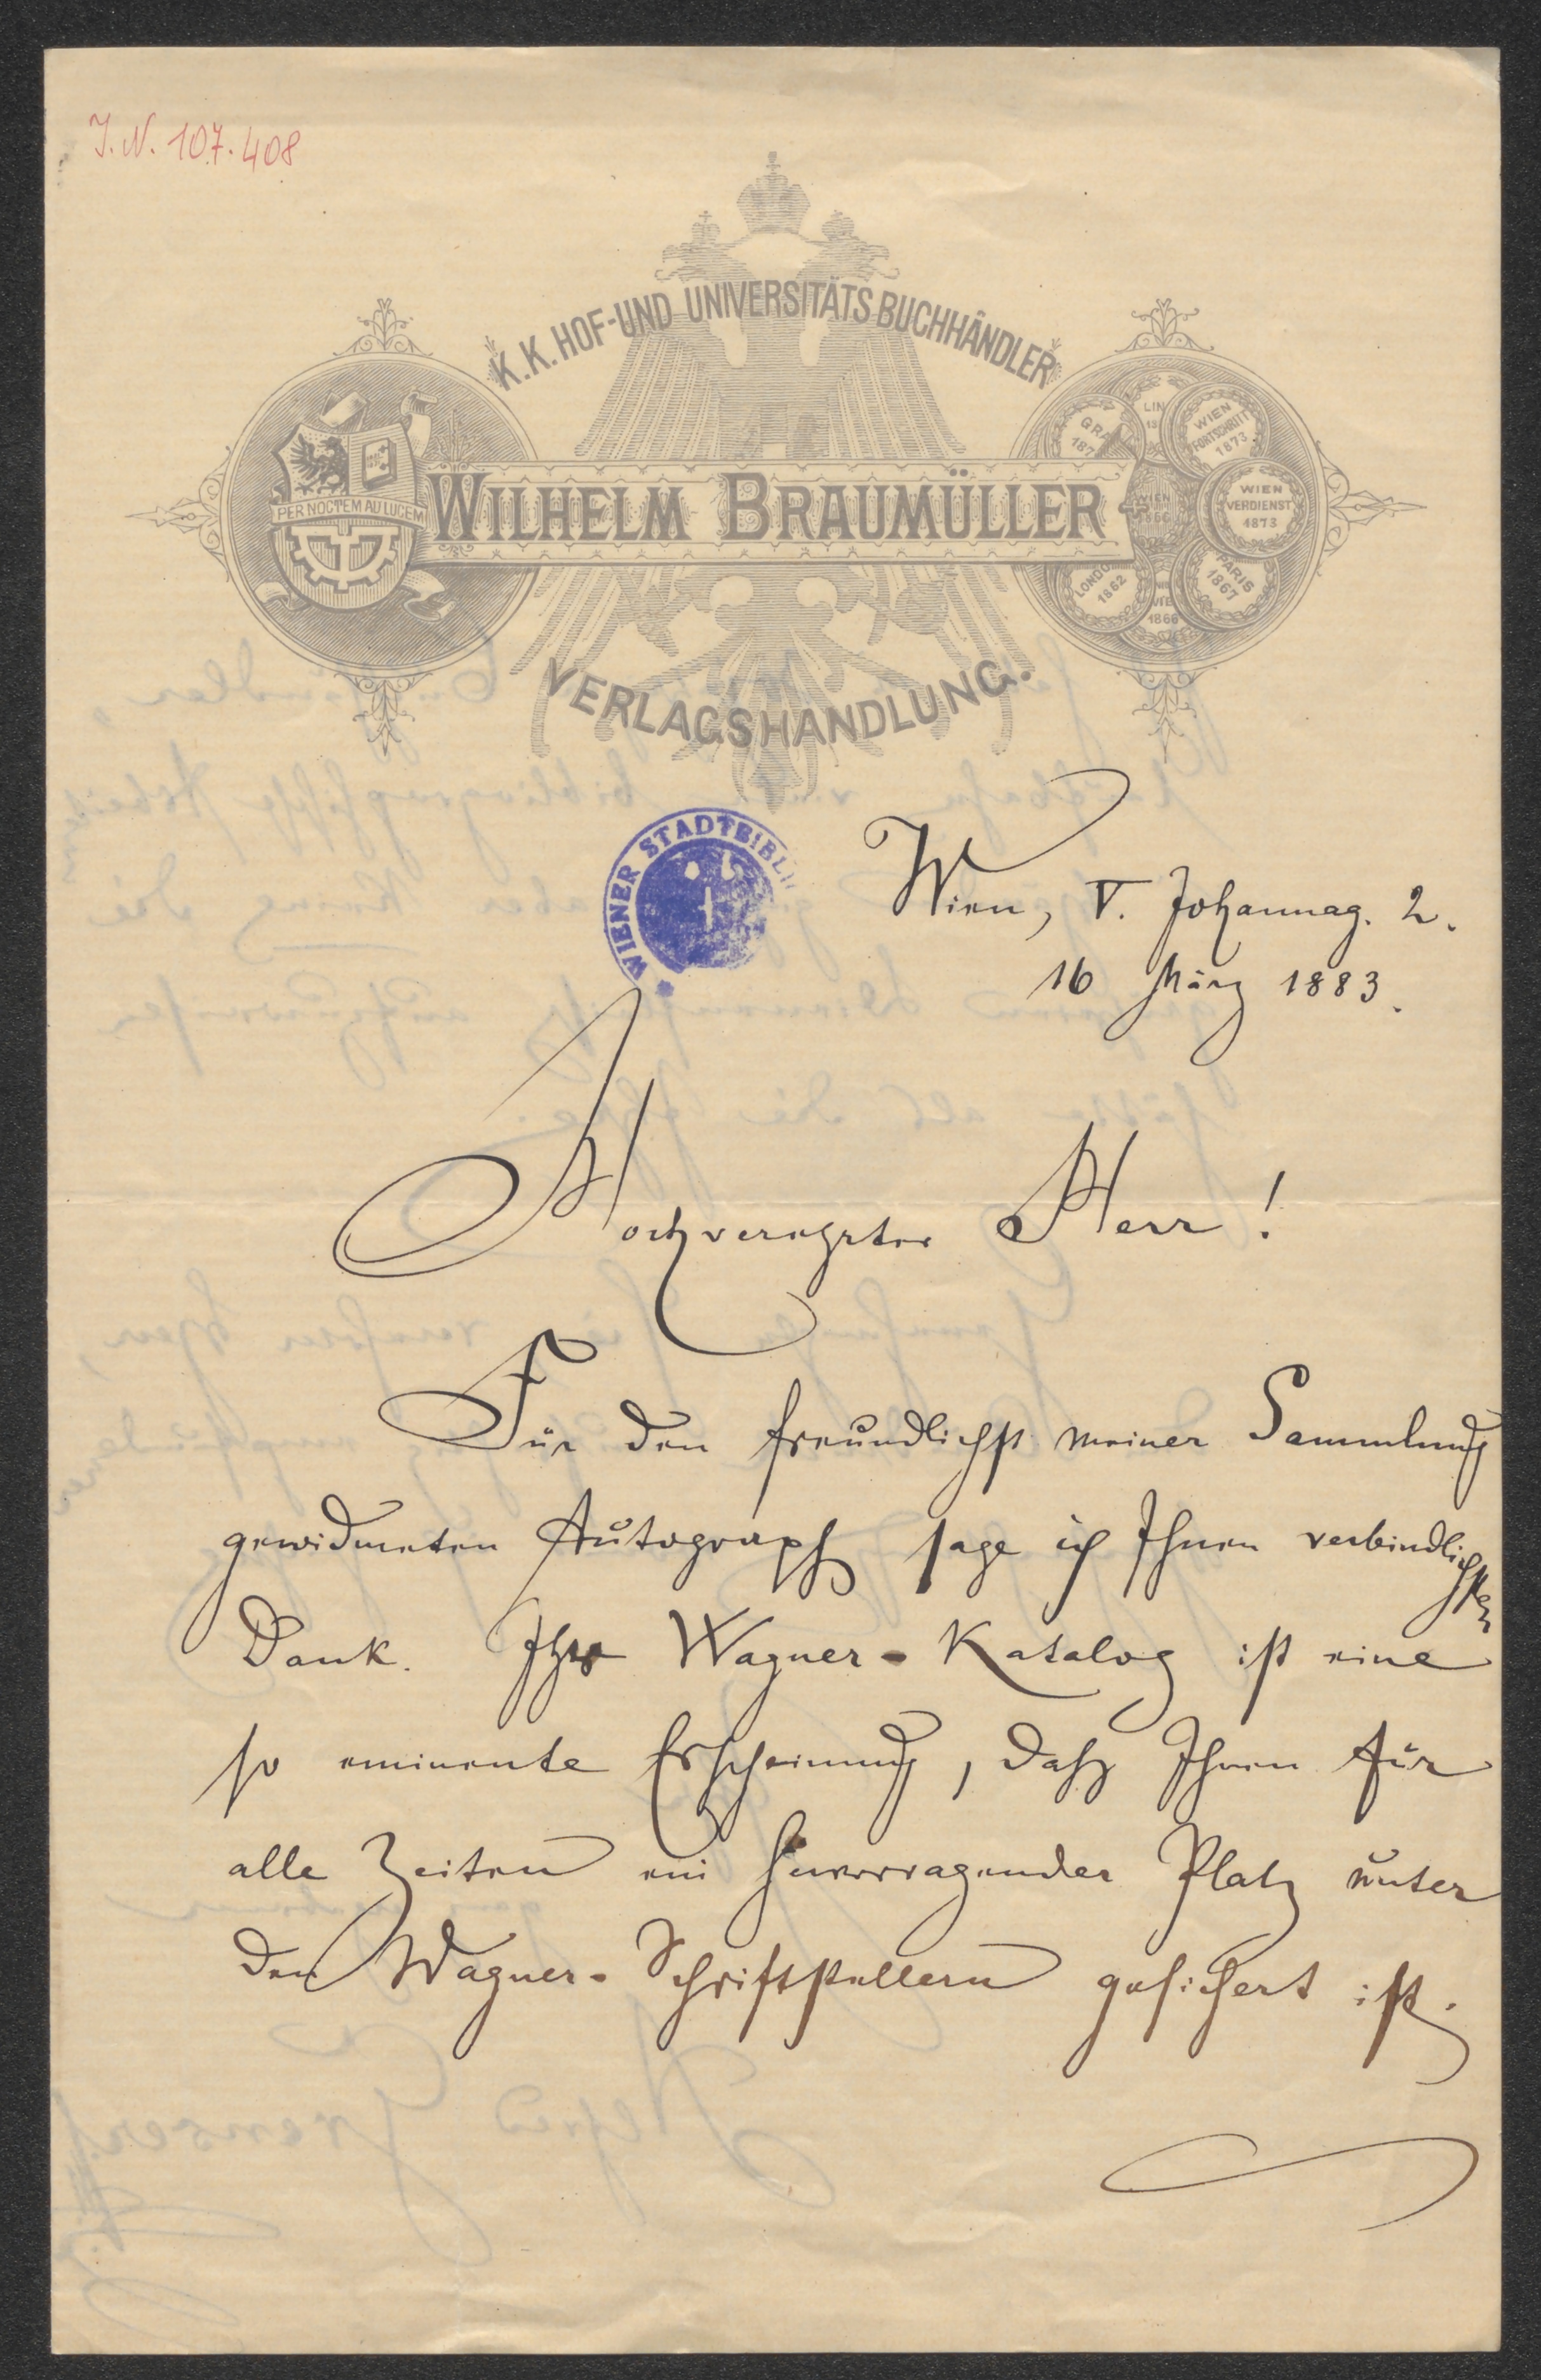 J.N. 107.408
K.K. HOF-UND UNIVERSITÄTS BUCHHÄNDLER
PER NOCTEM AD LUCEM
WILHELM BRAUMÜLLER
GRA
187
LIN
WIEN
FORTSCHRITT
1873
WIEN
1866
WIEN
VERDIENST
1873
LONDO
1862
1866
PARIS
1867
VERLAGSHANDLUNG.
WIENER STADTBIBLI
Wien, V. Johannag. 2.
16 März 1883.
Hochverehrter Herr!
Für den freundlichst meiner Sammlung
gewidmeten Autograph sage ich Ihnen verbindlichsten
Dank. Ihr Wagner-Katalog ist eine
so eminente Erscheinung, daß Ihnen für
alle Zeiten ein hervorragender Platz unter
den Wagner-Schriftstellern gesichert ist.